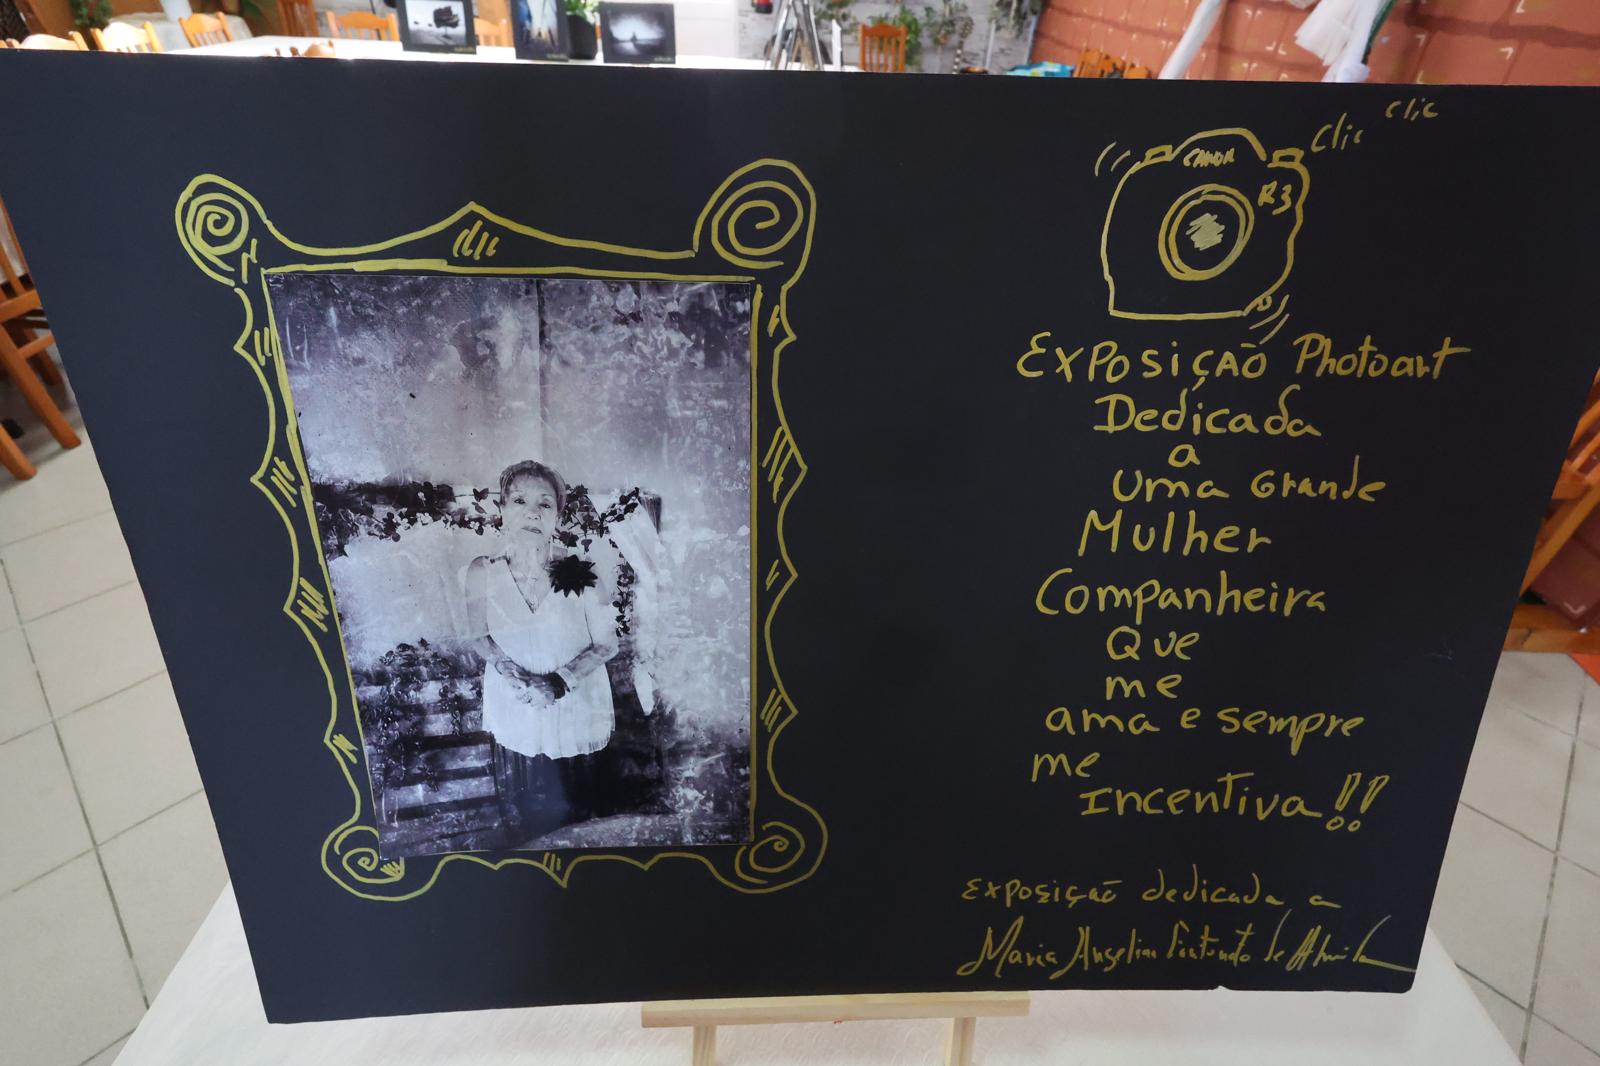 clic clic
CANON
R3
Exposição Photoart
Dedicada
a
uma Grande
Mulher
Companheira
Que
me
ama e sempre
me
Incentiva!!
Exposição dedicada a
Maria Angelina Fortunato de Almeida